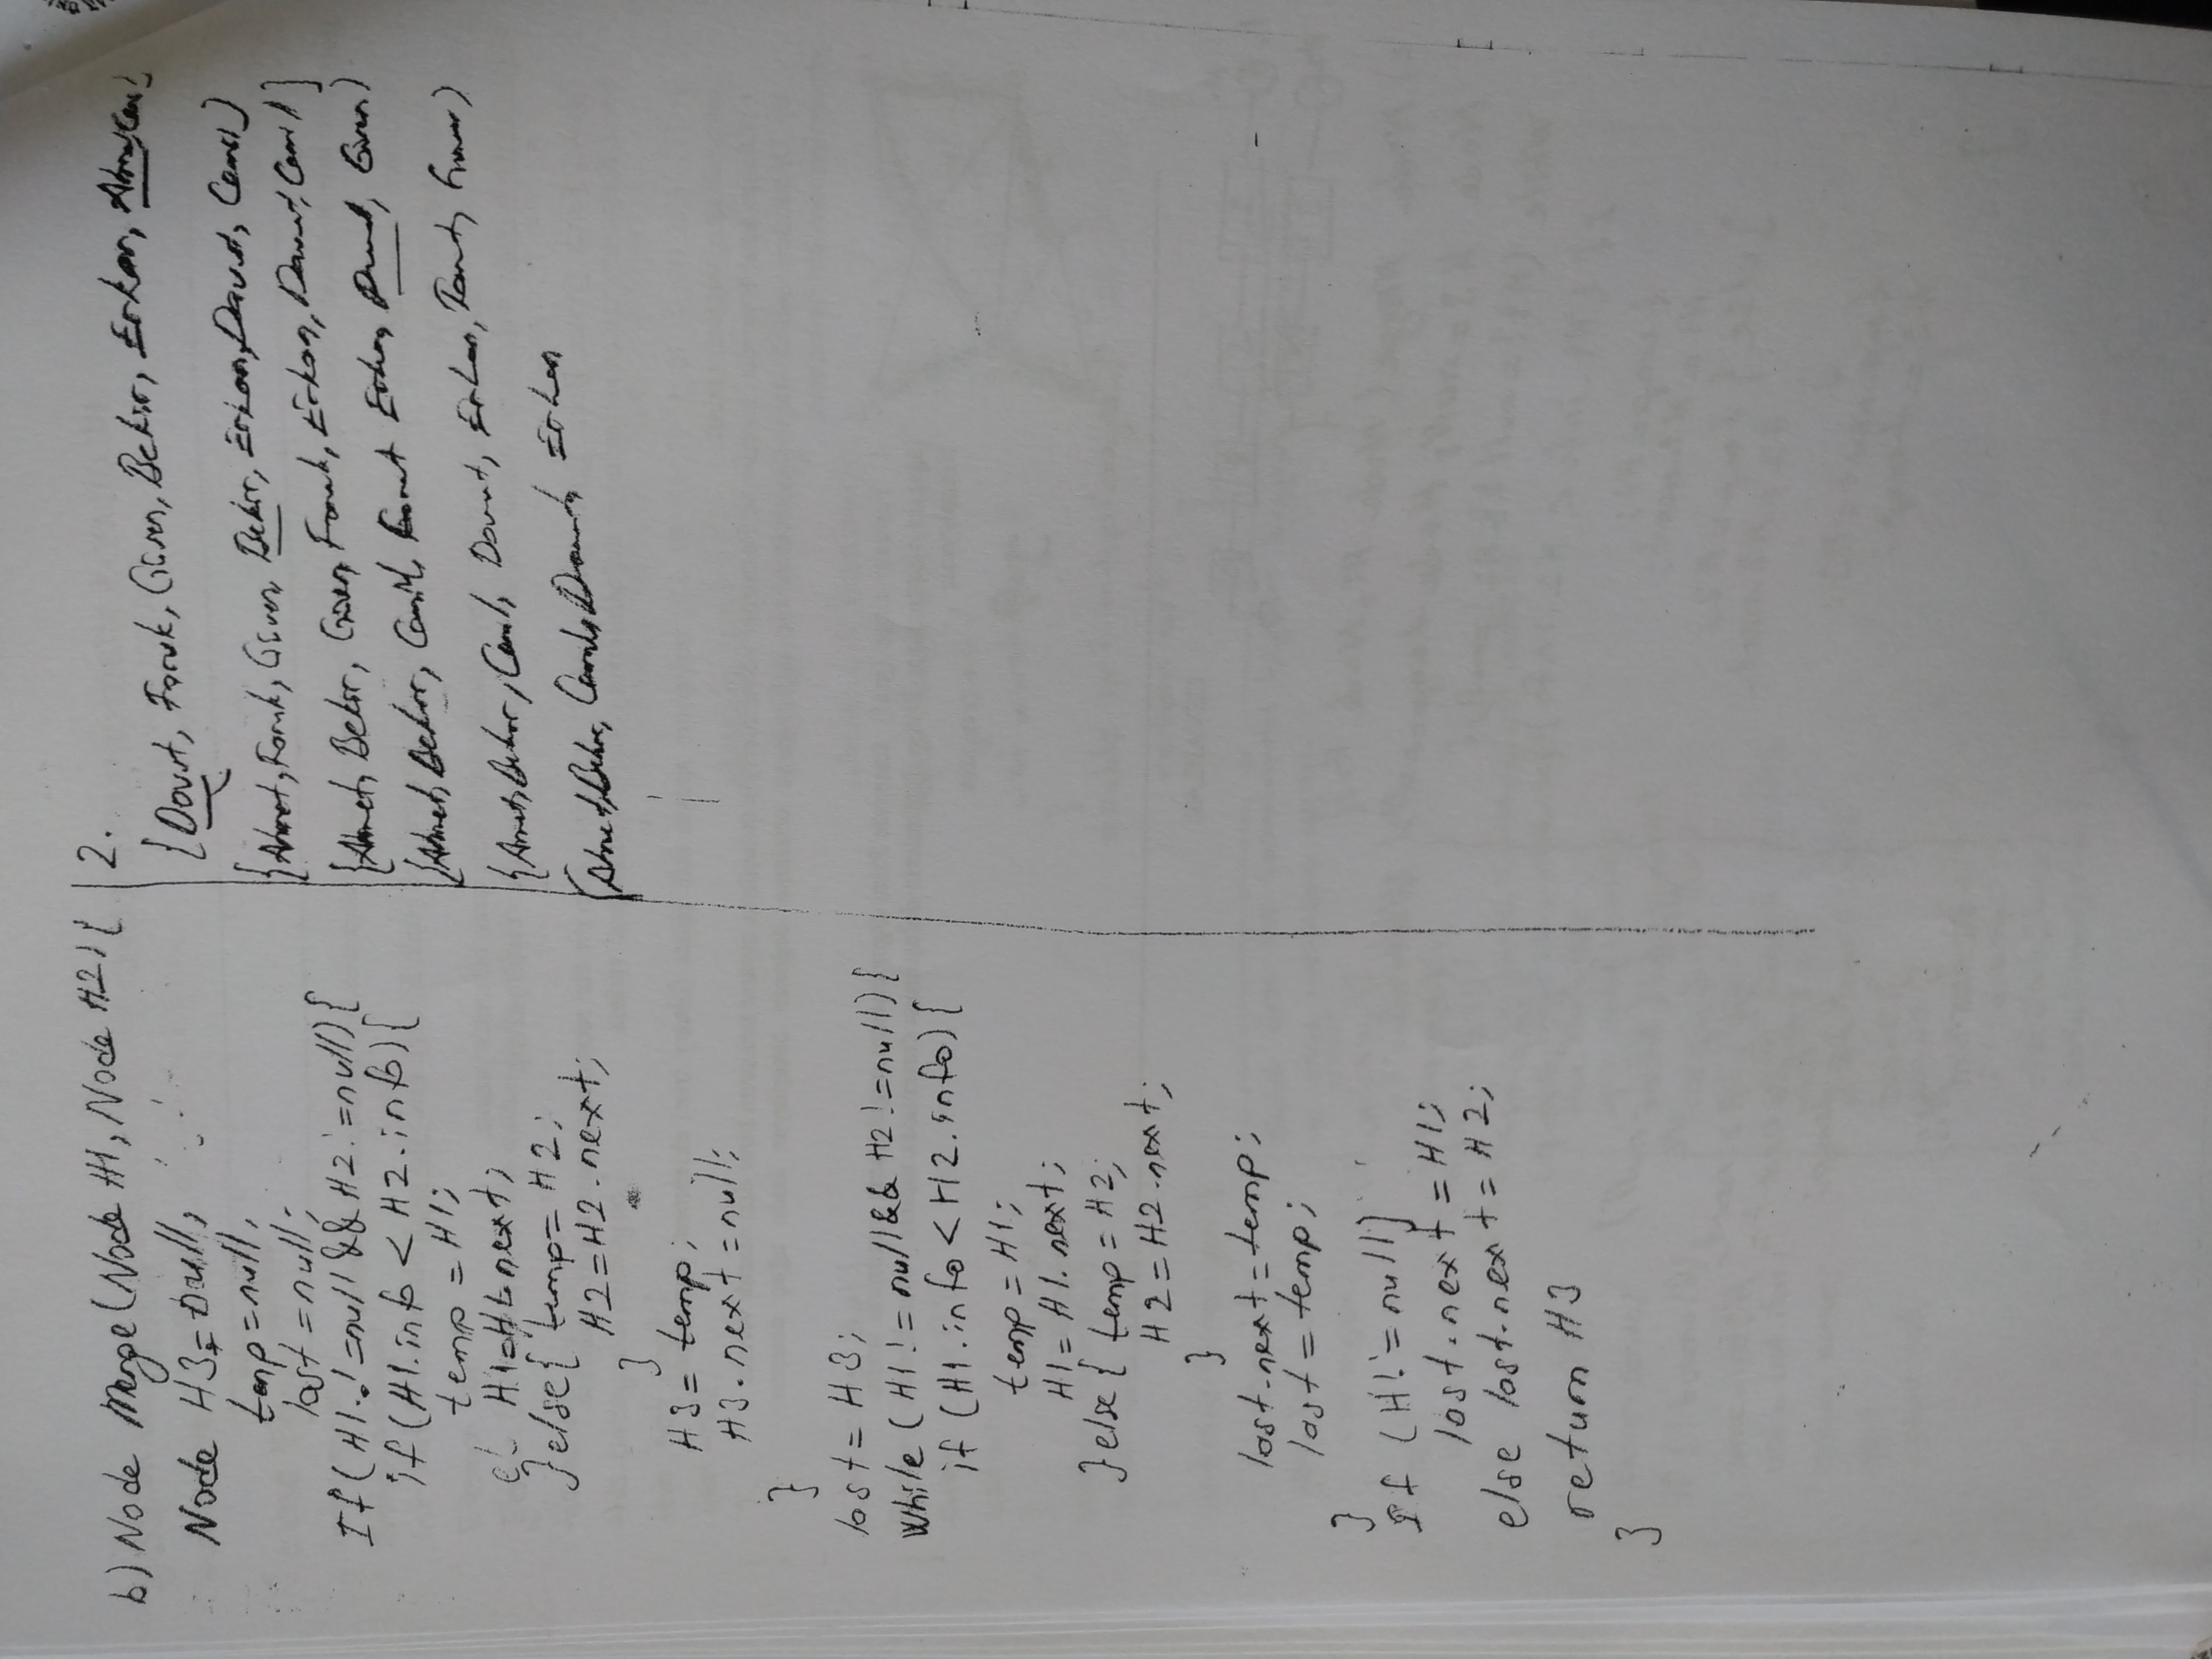 b) Node Merge(Node H1, Node H2){
Node H3 = null,
temp = null,
last = null;
If(H1 != null && H2 != null){
if(H1.info < H2.info){
temp = H1;
H1=H1.next;
}else{ temp = H2;
H2=H2.next;
}
H3 = temp;
H3.next = null;
}
last = H3;
While (H1 != null && H2 != null){
if (H1.info < H2.info){
temp = H1;
H1 = H1.next;
}else{ temp = H2;
H2 = H2.next;
}
last.next = temp;
last = temp;
}
If (H! = null)
last.next = H1;
else last.next = H2;
return H3
}
2.
{Davut, Faruk, Güven, Bekir, Erkan, Ahmet, Cemil}
{Ahmet, Faruk, Güven, Bekir, Erkan, Davut, Cemil}
{Ahmet, Bekir, Güven, Faruk, Erkan, Davut, Cemil}
{Ahmet, Bekir, Cemil, Erkan, Davut, Güven}
{Ahmet, Bekir, Cemil, Davut, Erkan,
{Ahmet, Bekir, Cemil, Davut, Erkan